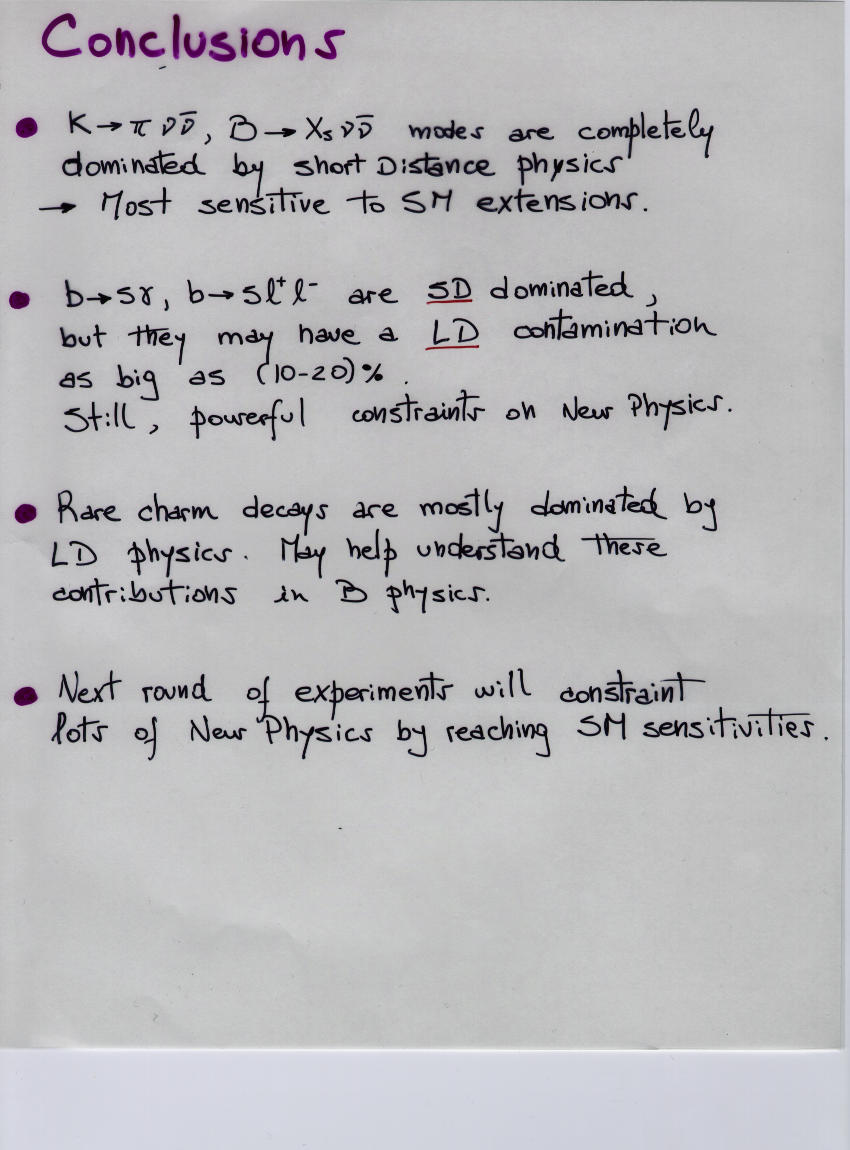 Conclusions
• K→π νν̄, B→Xs νν̄ modes are completely
dominated by short Distance physics
→ Most sensitive to SM extensions.
• b→sγ, b→sl⁺l⁻ are SD dominated,
but they may have a LD contamination
as big as (10-20)%.
Still, powerful constraints on New Physics.
• Rare charm decays are mostly dominated by
LD physics. May help understand these
contributions in B physics.
• Next round of experiments will constraint
lots of New Physics by reaching SM sensitivities.